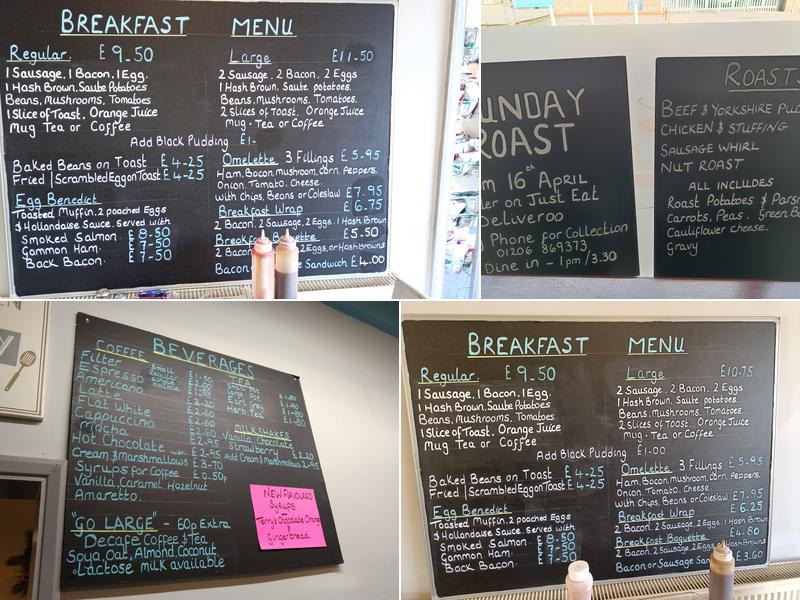 BREAKFAST MENU
Regular. £9-50
1 Sausage, 1 Bacon, 1 Egg.
1 Hash Brown, Saute Potatoes
Beans, Mushrooms, Tomatoes
1 Slice of Toast, Orange Juice
Mug Tea or Coffee
Large £11-50
2 Sausage, 2 Bacon, 2 Eggs
1 Hash Brown, Saute potatoes,
Beans, mushrooms, Tomatoes,
2 slices of Toast, Orange Juice
Mug - Tea or Coffee
Add Black Pudding £1-
Baked Beans on Toast £4-25
Fried | Scrambled Egg on Toast £4-25
Egg Benedict
Toasted Muffin, 2 poached Eggs
& Hollandaise Sauce. served with
Smoked Salmon £8-50
Gammon Ham. £7-50
Back Bacon £7-50
Omelette 3 Fillings £5-95
Ham, Bacon, mushroom, corn, Peppers,
Onion, Tomato, Cheese
with Chips, Beans or Coleslaw £7.95
Breakfast Wrap £6.75
2 Bacon, 2 Sausage, 2 Eggs, 1 Hash Brown
£5.50
2 Bacon, 2 Eggs, or Hash Browns
Bacon Sandwich £4.00
UNDAY
ROAST
16th April
on Just Eat
Deliveroo
Phone for Collection
01206 869373
Dine in - 1pm / 3.30
ROAST
BEEF & YORKSHIRE PUD
CHICKEN & STUFFING
SAUSAGE WHIRL
NUT ROAST
ALL INCLUDES
Roast Potatoes & Parsn
Carrots, Peas, Green Be
Cauliflower cheese.
Gravy
BEVERAGES
COFFEE
Filter
Espresso
Americano
Latte
Flat White
Cappuccino
Mocha
Hot Chocolate
Cream & marshmallows
Syrups for Coffee £0.50p
Vanilla, Caramel, Hazelnut
Amaretto.
TEA
Earl Grey
Herb Tea
MILKSHAKES
Vanilla, Chocolate
Strawberry £2.20
Add Cream & Marshmallows 2-95
"GO LARGE" - 60p Extra
Decafe Coffee & Tea
Soya, Oat, Almond, Coconut,
Lactose milk available
NEW FLAVOURED
SYRUPS
Terry's Chocolate Orange
Gingerbread
BREAKFAST MENU
Regular. £9-50
1 Sausage, 1 Bacon, 1 Egg.
1 Hash Brown, Saute Potatoes
Beans, Mushrooms, Tomatoes
1 Slice of Toast, Orange Juice
Mug Tea or Coffee
Large £10-75
2 Sausage, 2 Bacon, 2 Eggs
1 Hash Brown, Saute potatoes,
Beans, mushrooms, Tomatoes,
2 slices of Toast, Orange Juice
Mug - Tea or Coffee
Add Black Pudding £1.00
Baked Beans on Toast £4-25
Fried | Scrambled Egg on Toast £4-25
Egg Benedict
Toasted Muffin, 2 poached Eggs
& Hollandaise Sauce. served with
Smoked Salmon £8-50
Gammon Ham. £7-50
Back Bacon £7-50
Omelette 3 Fillings £5-95
Ham, Bacon, mushroom, corn, Peppers,
Onion, Tomato, Cheese
with Chips, Beans or Coleslaw £7.95
Breakfast Wrap £6.25
2 Bacon, 2 Sausage, 2 Eggs, 1 Hash Brown
Breakfast Baguette £4-80
2 Bacon, 2 Sausage, 2 Eggs, Hash Browns
Bacon or Sausage San £3.60